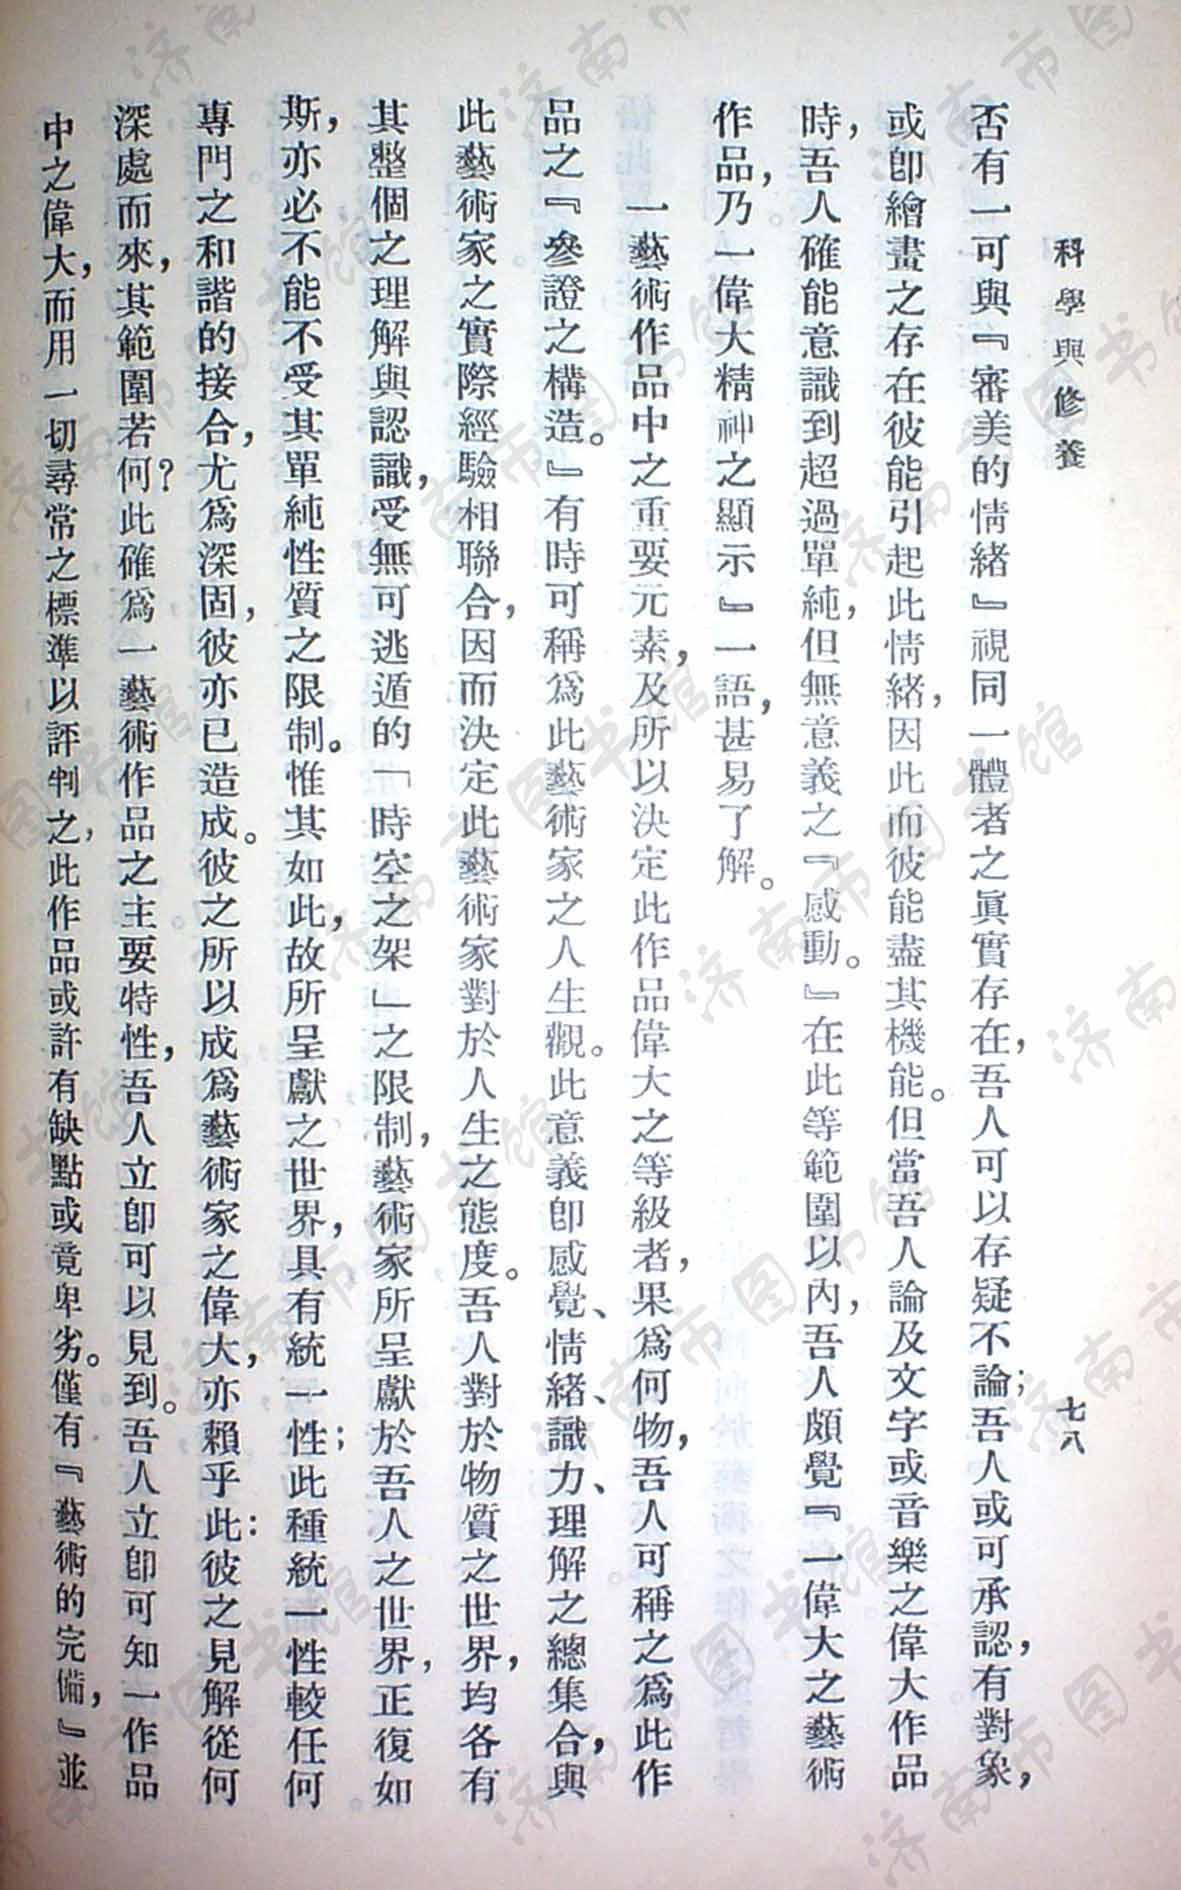 科學與修養
七八
否有一可與『審美的情緒』視同一體者之眞實存在，吾人可以存疑不論；吾人或可承認，有對象，
或卽繪畫之存在彼能引起此情緒，因此而彼能盡其機能。但當吾人論及文字或音樂之偉大作品
時，吾人確能意識到超過單純，但無意義之『感動。』在此等範圍以內，吾人頗覺『一偉大之藝術
作品，乃一偉大精神之顯示』一語，甚易了解。
一藝術作品中之重要元素，及所以決定此作品偉大之等級者，果爲何物，吾人可稱之爲此作
品之『參證之構造。』有時可稱爲此藝術家之人生觀。此意義卽感覺、情緒、識力、理解之總集合，與
此藝術家之實際經驗相聯合，因而決定此藝術家對於人生之態度。吾人對於物質之世界，均各有
其整個之理解與認識，受無可逃遁的「時空之架」之限制，藝術家所呈獻於吾人之世界，正復如
斯，亦必不能不受其單純性質之限制。惟其如此，故所呈獻之世界，具有統一性；此種統一性較任何
專門之和諧的接合，尤爲深固，彼亦已造成。彼之所以成爲藝術家之偉大，亦賴乎此：彼之見解從何
深處而來，其範圍若何？此確爲一藝術作品之主要特性，吾人立卽可以見到。吾人立卽可知一作品
中之偉大，而用一切尋常之標準以評判之，此作品或許有缺點或竟卑劣。僅有『藝術的完備，』並
济南市图书馆